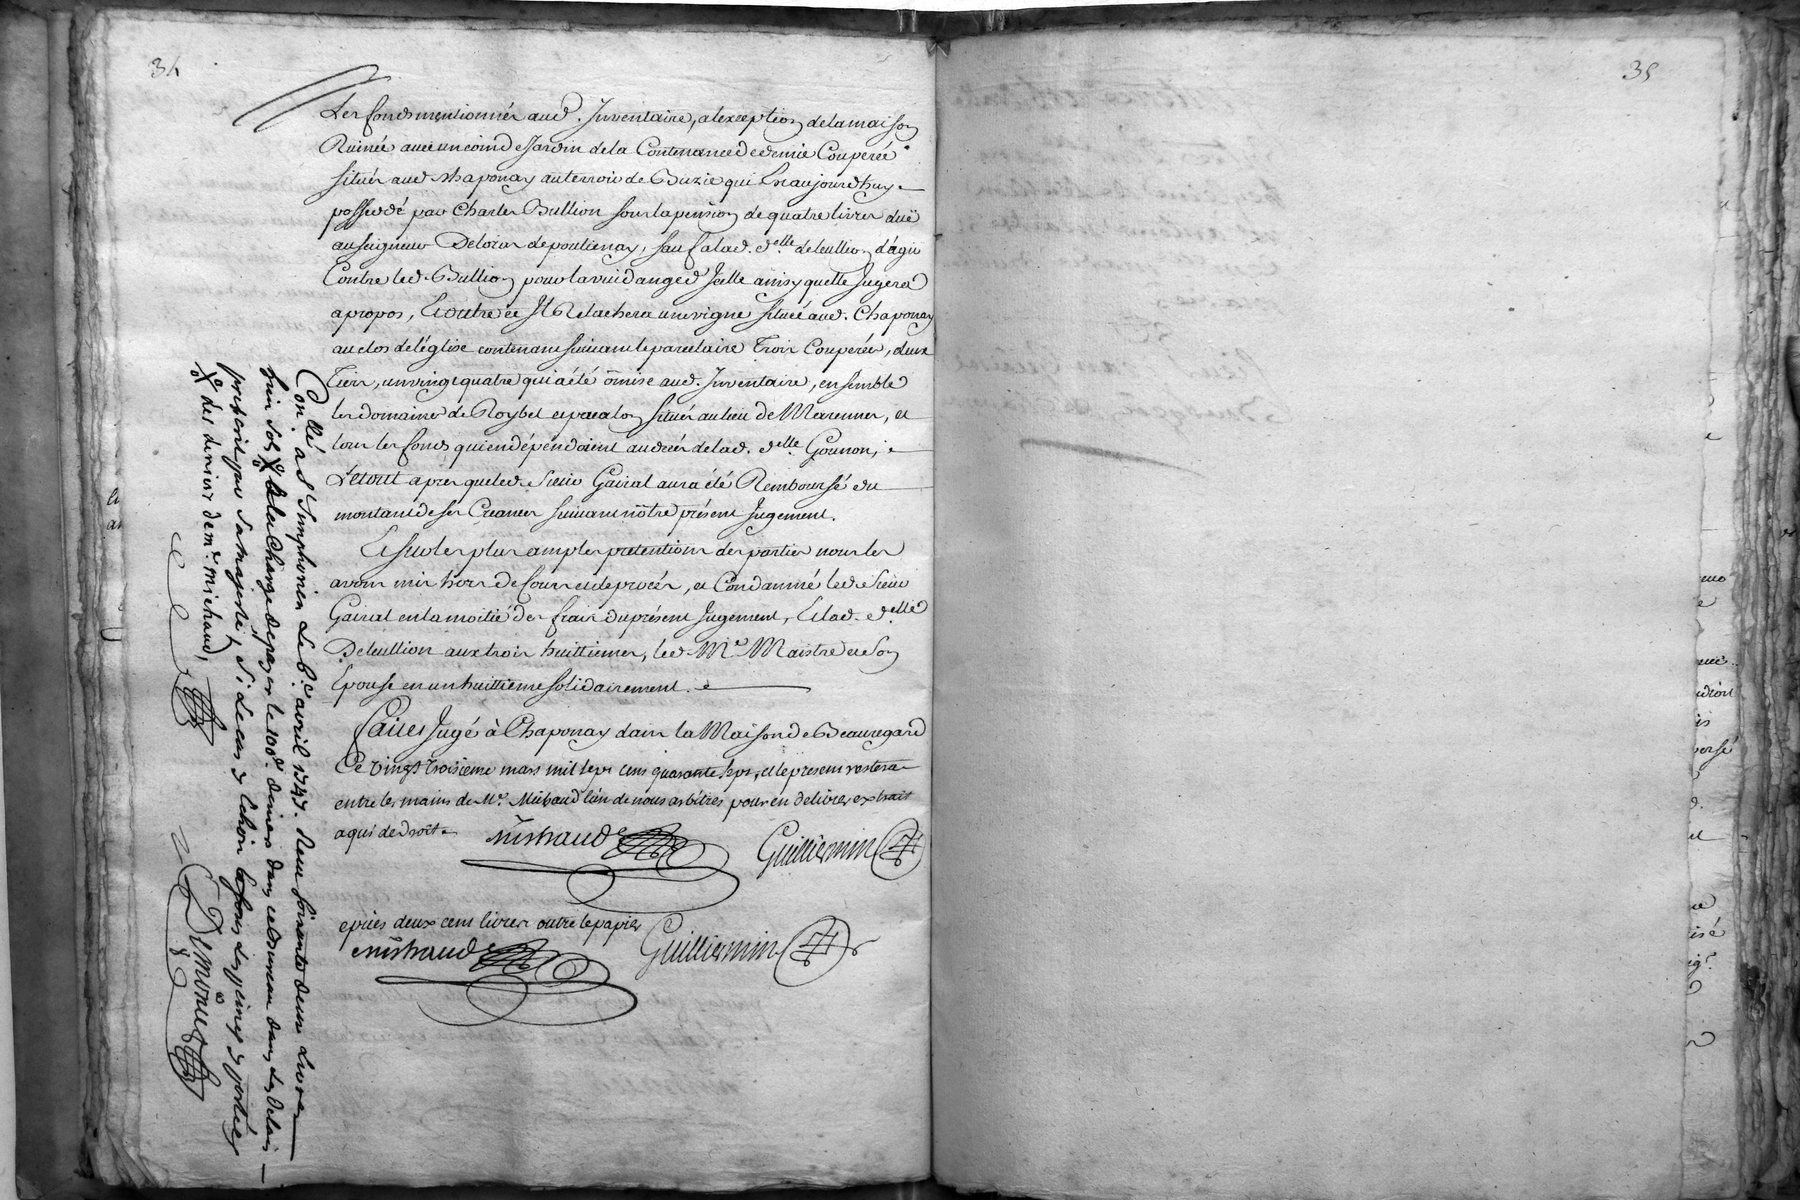 34
Les fonds mentionnés aud. Inventaire, a lexception de la maison
Ruinée avec un coin de Jardin de la Contenance de demie Couperée
situés aud. Chaponay au terroir de Buzie qui Est aujourdhuy
possedé par Charles Bullion sous la pension de quatre livres duë
au seigneur Deloras de poulienay, sauf a lad. delle. deleullion d'agir
Contre led. Bullion pour la vuidange d'Icelle ainsy quelle Jugera
apropos, Et outre ce Il Relachera une vigne située aud. Chaponay
au clos de léglise contenant suivant le parcelaire Trois Couperées, deux
Tiers, un vingt quatre qui a été ômise aud. Inventaire, ensemble
les domaines de Roybet et paralon situés au lieu de Marennes, et
tous les fonds qui en dépendoient au decés de lad. delle. Gounon,
Le tout apres que led. Sieur Gairal aura été Remboursé du
montant de ses Creances suivant nôtre présent Jugement.
Et sur les plus amples pretentions des parties nous les
avons mis hors de Cour et de procés, et Condamné led. Sieur
Gairal en la moitié des frais du présent Jugement, Et lad. delle.
Deleullion aux trois huittiemes, led. Me. Maistre et son
Epouse en un huittieme solidairement.
Fait et Jugé à Chaponay dans la Maison de Beauregard
Ce vingt troisieme mars mil sept cens quarante sept, et le present restera
entre les mains de Me. Michaud l'un de nous arbitres pour en delivrer extrait
a qui de droit.
Michaud Guilliermin
epices deux cent livres outre le papier
Michaud Guilliermin
Conllé a St Simphorien Le 6e. avril 1747. Reçu soixante deux livres
huit sols X a la Charge de payer le 100e. denier dans ce bureau dans les delais
prescrits par Sa majesté, Si le cas y echoit
X des deniers de mr. michaud,
Demônet
35